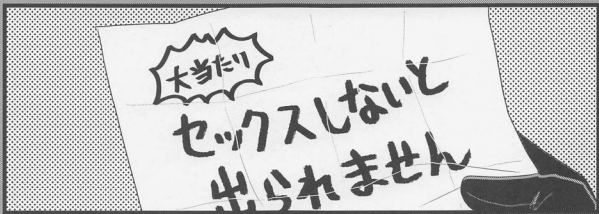 大当たり
セックスしないと
出られません